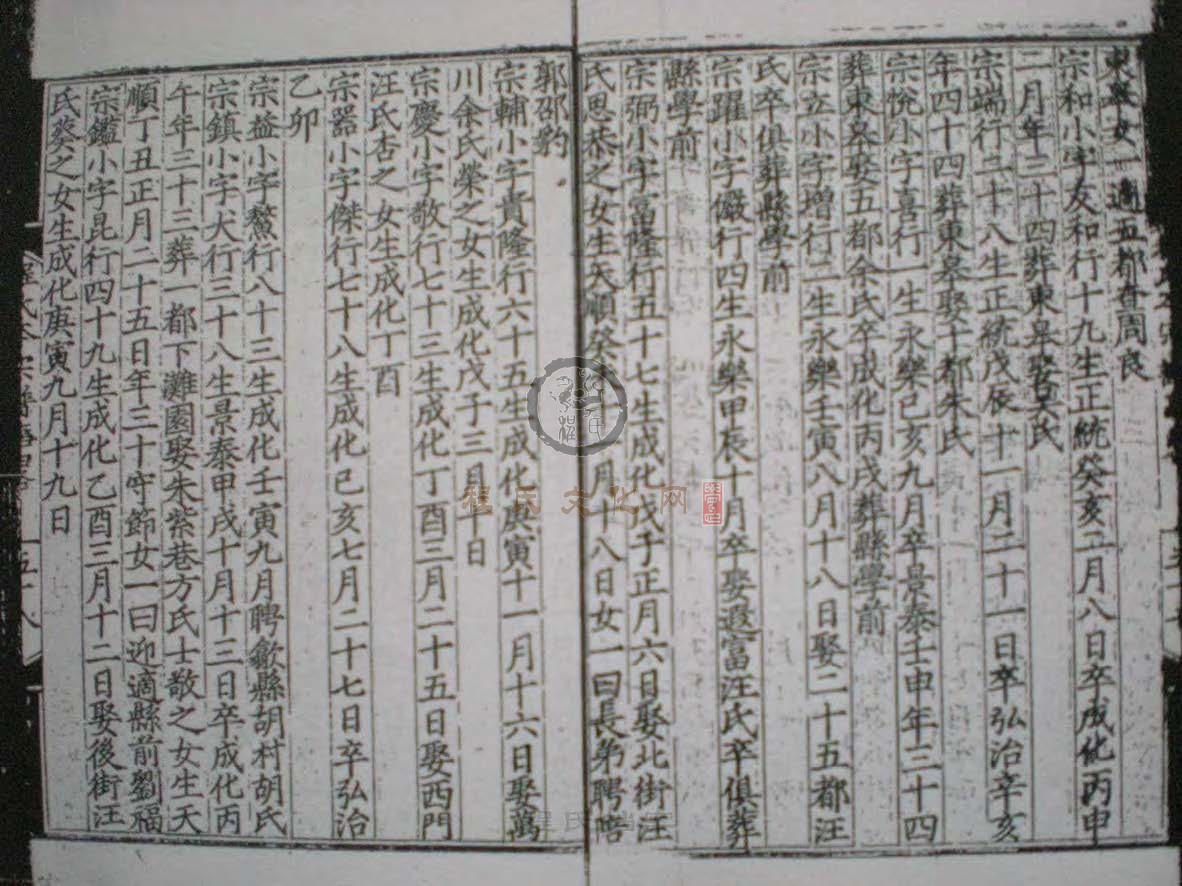 東臯女一適五都查周良
宗和小字友和行十九生正統癸亥二月八日卒成化丙申
二月年三十四葬東臯娶吳氏
宗端行三十八生正統戊辰十一月二十一日卒弘治辛亥
年四十四葬東臯娶十都朱氏
宗悅小字喜行一生永樂己亥九月卒景泰壬申年三十四
葬東臯娶五都余氏卒成化丙戌葬縣學前
宗立小字增行二生永樂壬寅八月十八日娶二十五都汪
氏卒俱葬縣學前
宗躍小字儼行四生永樂甲辰十月卒娶遐富汪氏卒俱葬
縣學前
宗弼小字富隆行五十七生成化戊子正月六日娶北街汪
氏思恭之女生天順癸未十二月十八日女一曰長弟聘階
郭邵豹
宗輔小字貴隆行六十五生成化庚寅十一月十六日娶萬
川余氏榮之女生成化戊子三月十日
宗慶小字敬行七十三生成化丁酉三月二十五日娶西門
汪氏杏之女生成化丁酉
宗器小字傑行七十八生成化己亥七月二十七日卒弘治
乙卯
宗益小字鰲行八十三生成化壬寅九月聘歙縣胡村胡氏
宗鎮小字犬行三十八生景泰甲戌十月十三日卒成化丙
午年三十三葬一都下灘園娶朱紫巷方氏士敬之女生天
順丁丑正月二十五日年三十守節女一曰迎適縣前劉福
宗鑑小字昆行四十九生成化乙酉三月十二日娶後街汪
氏葵之女生成化庚寅九月十九日
五十八
程氏文化网